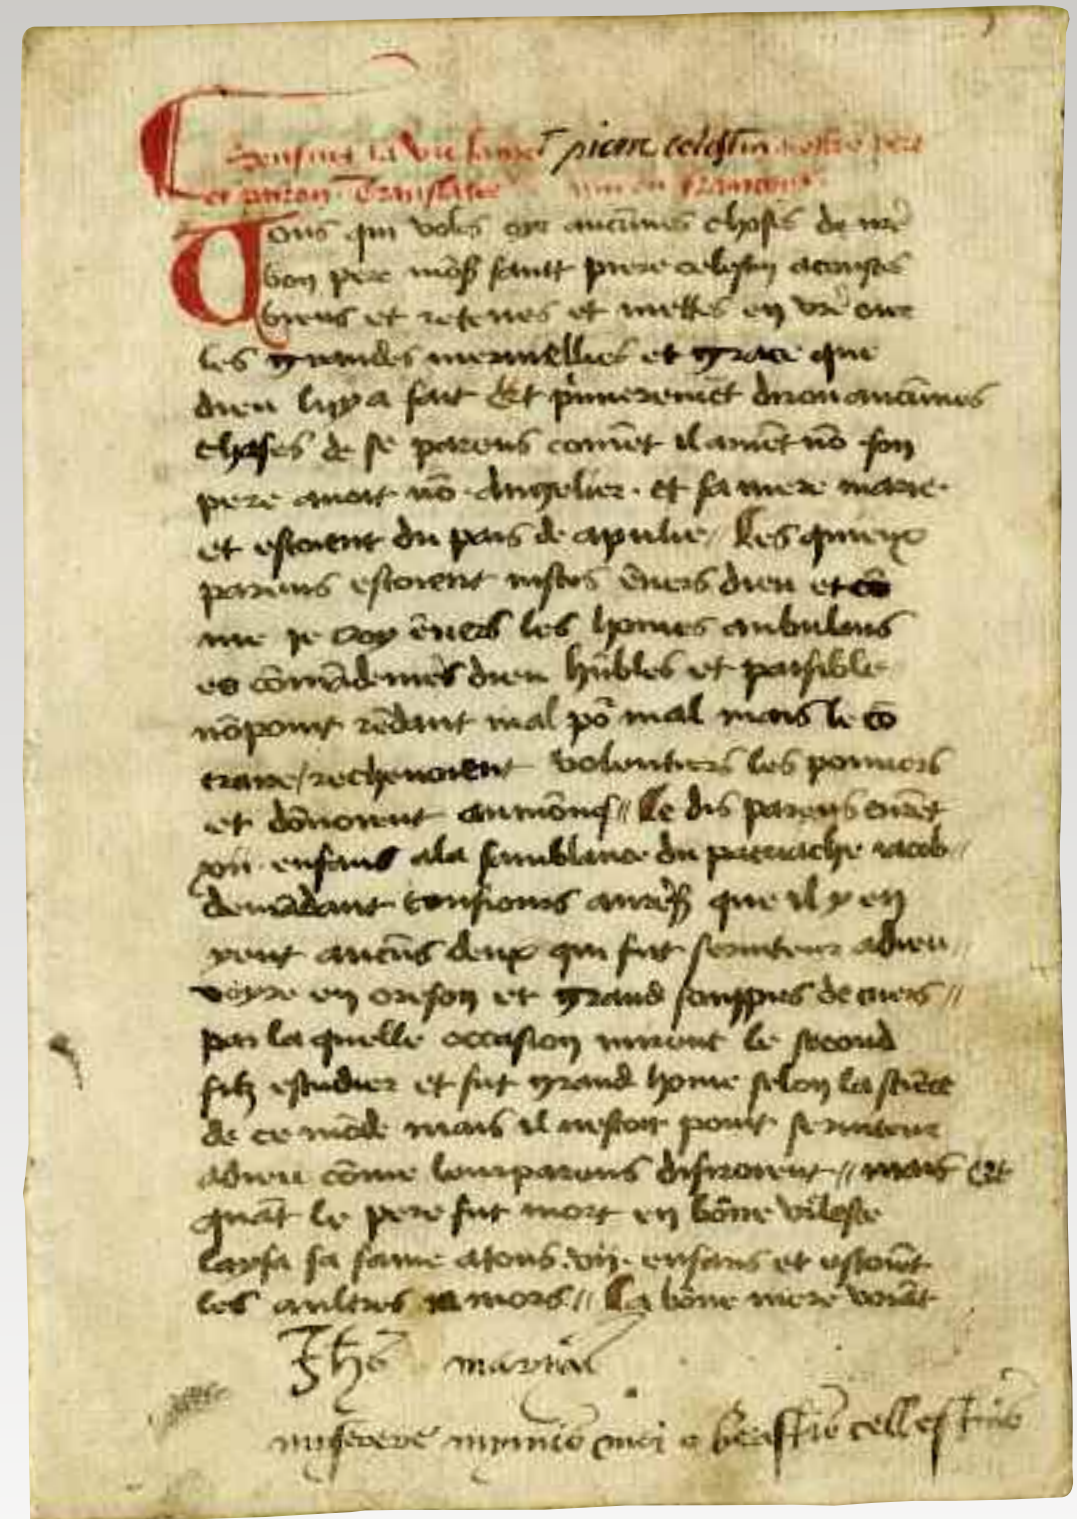 Cy ensuit la vie saint piere celestin nostre pere
et patron Translatee en francois
Vous qui voles oyr aucunes choses de nrē
bon pere mōsʳ saint piere celestin acoustes
biens et retenes et mettes en vrē cuer
les grandes mervellies et grace que
dieu luy a fait Et p̄mieremēt diron aucūnes
choses de se parens comēt il avoiēt nō son
pere avoit nō Angelier et sa mere marie
et estoient du pais de apulie // Les quieux
parens estoient iustes ēvers dieu et cō
me je croy ēvers les homes anbulans
es cōmādemēs dieu hūbles et paisible
nō point rēdant mal po᷑ mal mais le cō
traire / rechevoient volentiers les pouvres
et dōnoient aumōnes // Le dis parens eurēt
xii enfans a la samblance du patriache iacob //
demādant tousiours que il y en
yeut aucūs deux qui fut serviteur a dieu //
voyre en oreson et grand de cuers //
par la quelle occasion mirent le second
filz estudier et fut grand home selon la sciēce
de ce mōde mais il nestoit point serviteur
a dieu cōme leur parens disiroient // mais Et
quāt le pere fut mort en bōne viliesse
laysa sa fame atous vii enfans et estoiēt
les aultres mors // La bōne mere voiāt
Jhēs martial
miserere mei o celestine